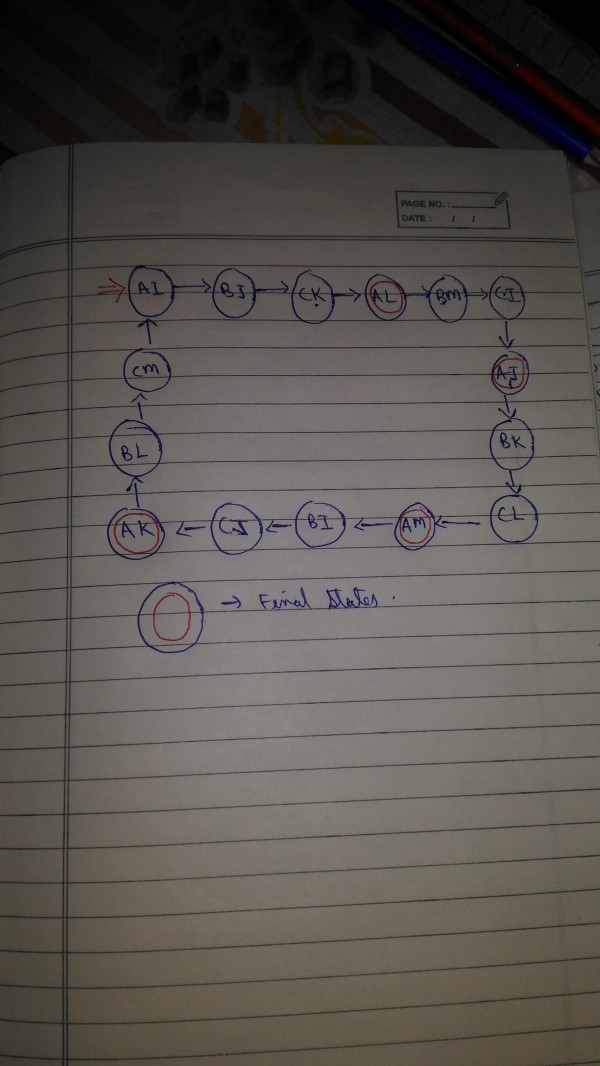 PAGE NO. :
DATE : / /
AI BJ CK AL BM CI
CM AJ
BL BK
AK CJ BI AM CL
→ Final States.